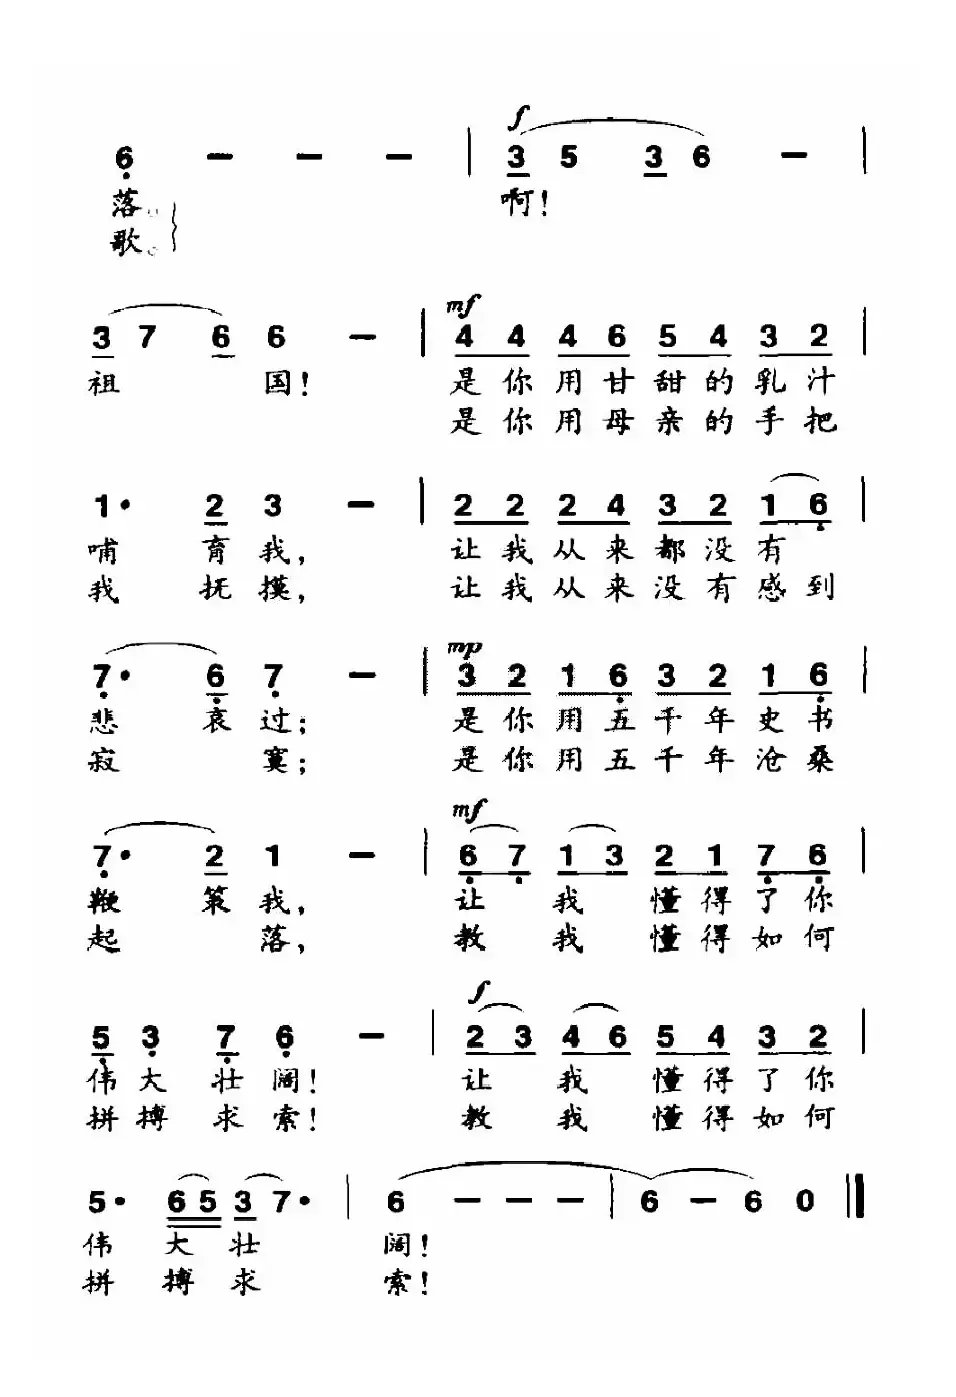 f
6 — — — | 3 5 3 6 — |
落。 啊！
歌。
mf
3 7 6 6 — | 4 4 4 6 5 4 3 2 |
祖 国！ 是你用甘甜的乳汁
是你用母亲的手把
1· 2 3 — | 2 2 2 4 3 2 1 6 |
哺 育我， 让我从来都没有
我 抚摸， 让我从来没有感到
mp
7· 6 7 — | 3 2 1 6 3 2 1 6 |
悲 哀过； 是你用五千年史书
寂 寞； 是你用五千年沧桑
mf
7· 2 1 — | 6 7 1 3 2 1 7 6 |
鞭 策我， 让 我 懂得了你
起 落， 教 我 懂得如何
f
5 3 7 6 — | 2 3 4 6 5 4 3 2 |
伟大壮阔！ 让 我 懂得了你
拼搏求索！ 教 我 懂得如何
5· 6 5 3 7· | 6 — — — | 6 — 6 0 ‖
伟 大 壮 阔！
拼 搏 求 索！